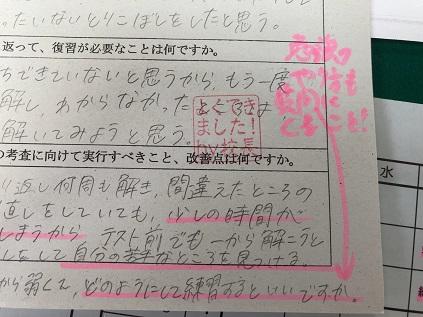 たいないとりこぼしをしたと思う。
返って、復習が必要なことは何ですか。
ちできていないと思うから、もう一度
解し、わからなかったところはよ
解いてみようと思う。
とくでき
ました!
by校長
の考査に向けて実行すべきこと、改善点は何ですか。
り返し何周も解き、間違えたところの
直しをしていても、少しの時間が
しまうから テスト前でも一から解こうと
しをして自分の苦手なところを見つける。
から弱くん、どのようにして練習するといいですか。
のやり方も
くること!
水